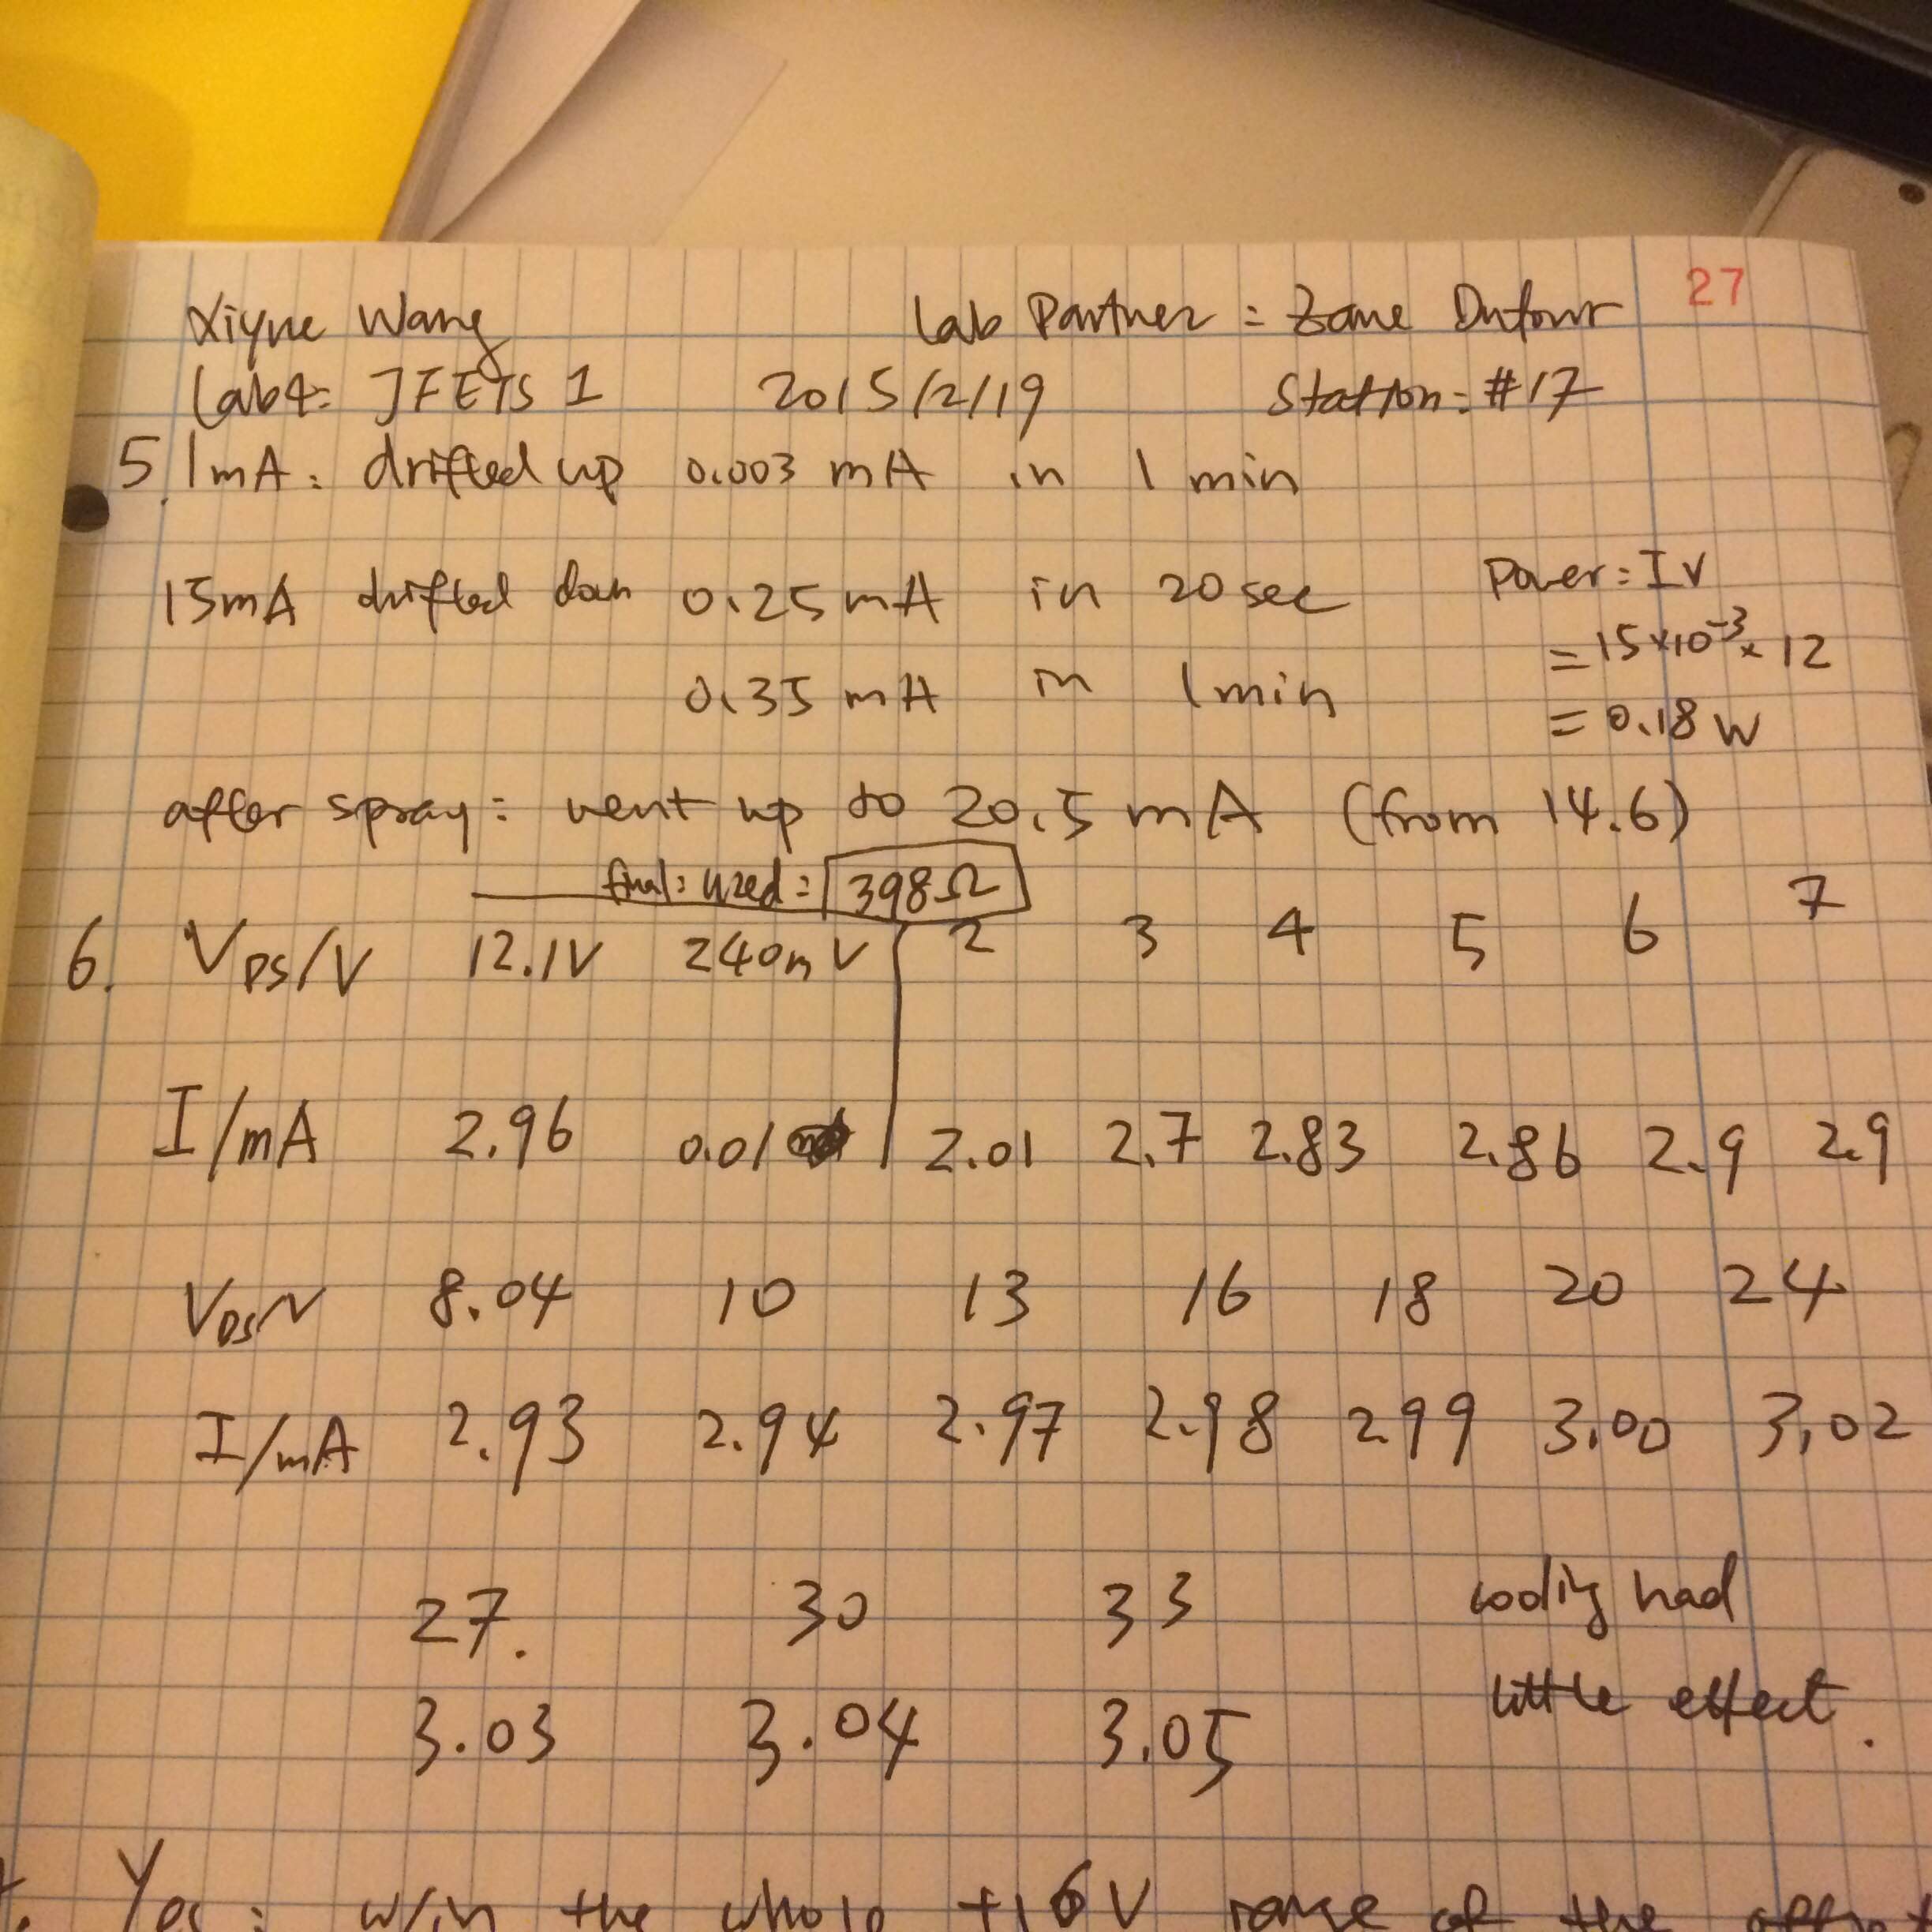 27
Xiyue Wang Lab Partner = Zane Dufour
Lab4: JFETS 1 2015/2/19 Station: #17
5. 1mA: drifted up 0.003 mA in 1 min
15mA drifted down 0.25mA in 20sec Power = IV
= 15×10⁻³ × 12
0.35 mA in 1min
= 0.18 W
after spray: went up to 20.5 mA (from 14.6)
final: used = 398Ω
6. VDS/V 12.1V 240mV 2 3 4 5 6 7
I/mA 2.96 0.01 2.01 2.7 2.83 2.86 2.9 2.9
VDS/V 8.04 10 13 16 18 20 24
I/mA 2.93 2.94 2.97 2.98 2.99 3.00 3.02
27. 30 33 cooling had
little effect.
3.03 3.04 3.05
Yes: w/in the whole range of the